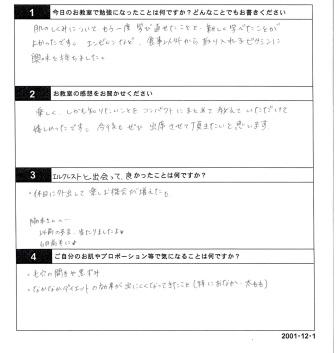 1 今日のお教室で勉強になったことは何ですか?どんなことでもお書きください
肌のしくみについてもう一度学び直せたことと、新しく学べたことが
よかったです。エンゼルなど、食事以外から取り入れるビタミンに
興味を持ちました。
2 お教室の感想をお聞かせください
楽しく、しかも知りたいことをコンパクトにまとめて教えていただけて
嬉しかったです。今後もぜひ出席させて頂きたいと思います。
3 エルクレストと出会って、良かったことは何ですか?
・休日に外出して楽しむ機会が増えた。
4 ご自分のお肌やプロポーション等で気になることは何ですか?
・毛穴の開きや黒ずみ
・なかなかダイエットの効果が出にくくなってきたこと(特におなか・太もも)
2001・12・1